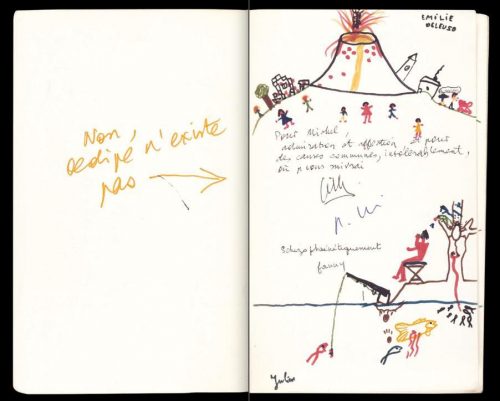 Non,
oedipe n'existe
pas
EMILIE
DELEUZE
Pour Michel,
admiration et affection, et pour
des causes communes, inlassablement,
où je vous suivrai
Gilles
Schizophréniquement
fanny
Julien